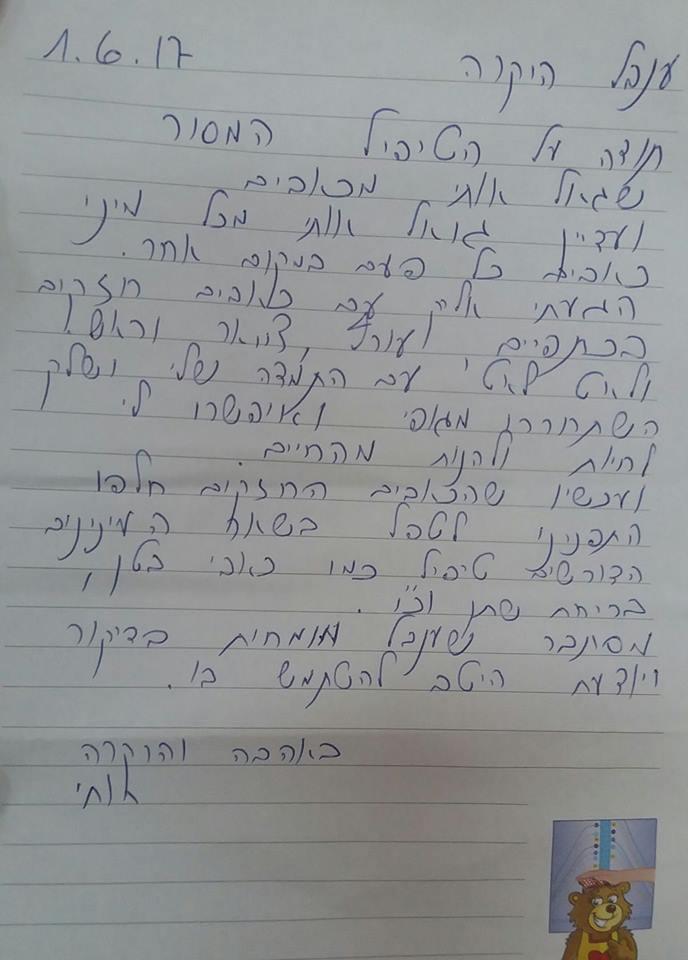 1.6.17
ענבל היקרה
תודה על הטיפול המסור
שגואל אותי מכאבים
ועדיין גואל אותי מכל מיני
כאבים כל פעם במקום אחר.
הגעתי אליך עם כאבים חזקים
בכתפיים ועורף, צוואר וראש!
ולאט לאט עם התמדה שלי ושלך
השתחררו מגופי ואיפשרו לי
לחיות ולהנות מהחיים.
ועכשיו שהכאבים החזקים חלפו
התפנינו לטפל בשאר המיניים
הדורשים טיפול כמו כאבי בטן,
בריחת שתן וכו'.
מסתבר שענבל מומחית בדיקור
ויודעת היטב להשתמש בו.
באהבה והוקרה